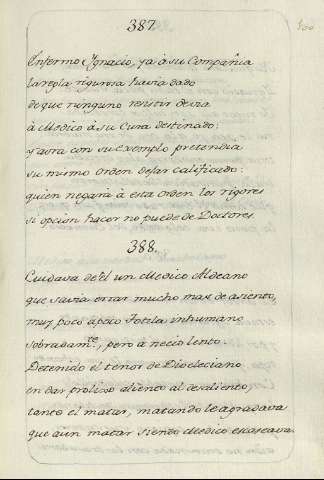 387.
Enfermo Ygnacio, ya à su Compañia
la regla rigurosa havia dado
de que ninguno resistir devia
à Medico à su Cura destinado:
y aora con su exemplo pretendia
su mismo orden dexar calificado:
quien negarà à esta orden los rigores
si opcion hacer no puede de Doctores.
388.
Cuidava de el un Medico Aldeano
que savia errar mucho mas de asiento,
muy poco à poco Totila inhumano
sobradamte, pero à necio lento.
Detenido el tenor de Diocleciano
en dar prolixo aliento al desaliento,
tanto el matar, matando le agradava
que aun matar siendo Medico escaseava